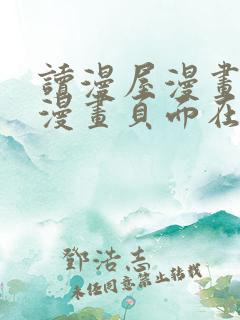 讀漫屋漫畫
漫畫頁面在
鄧浩志
未經同意禁止轉載